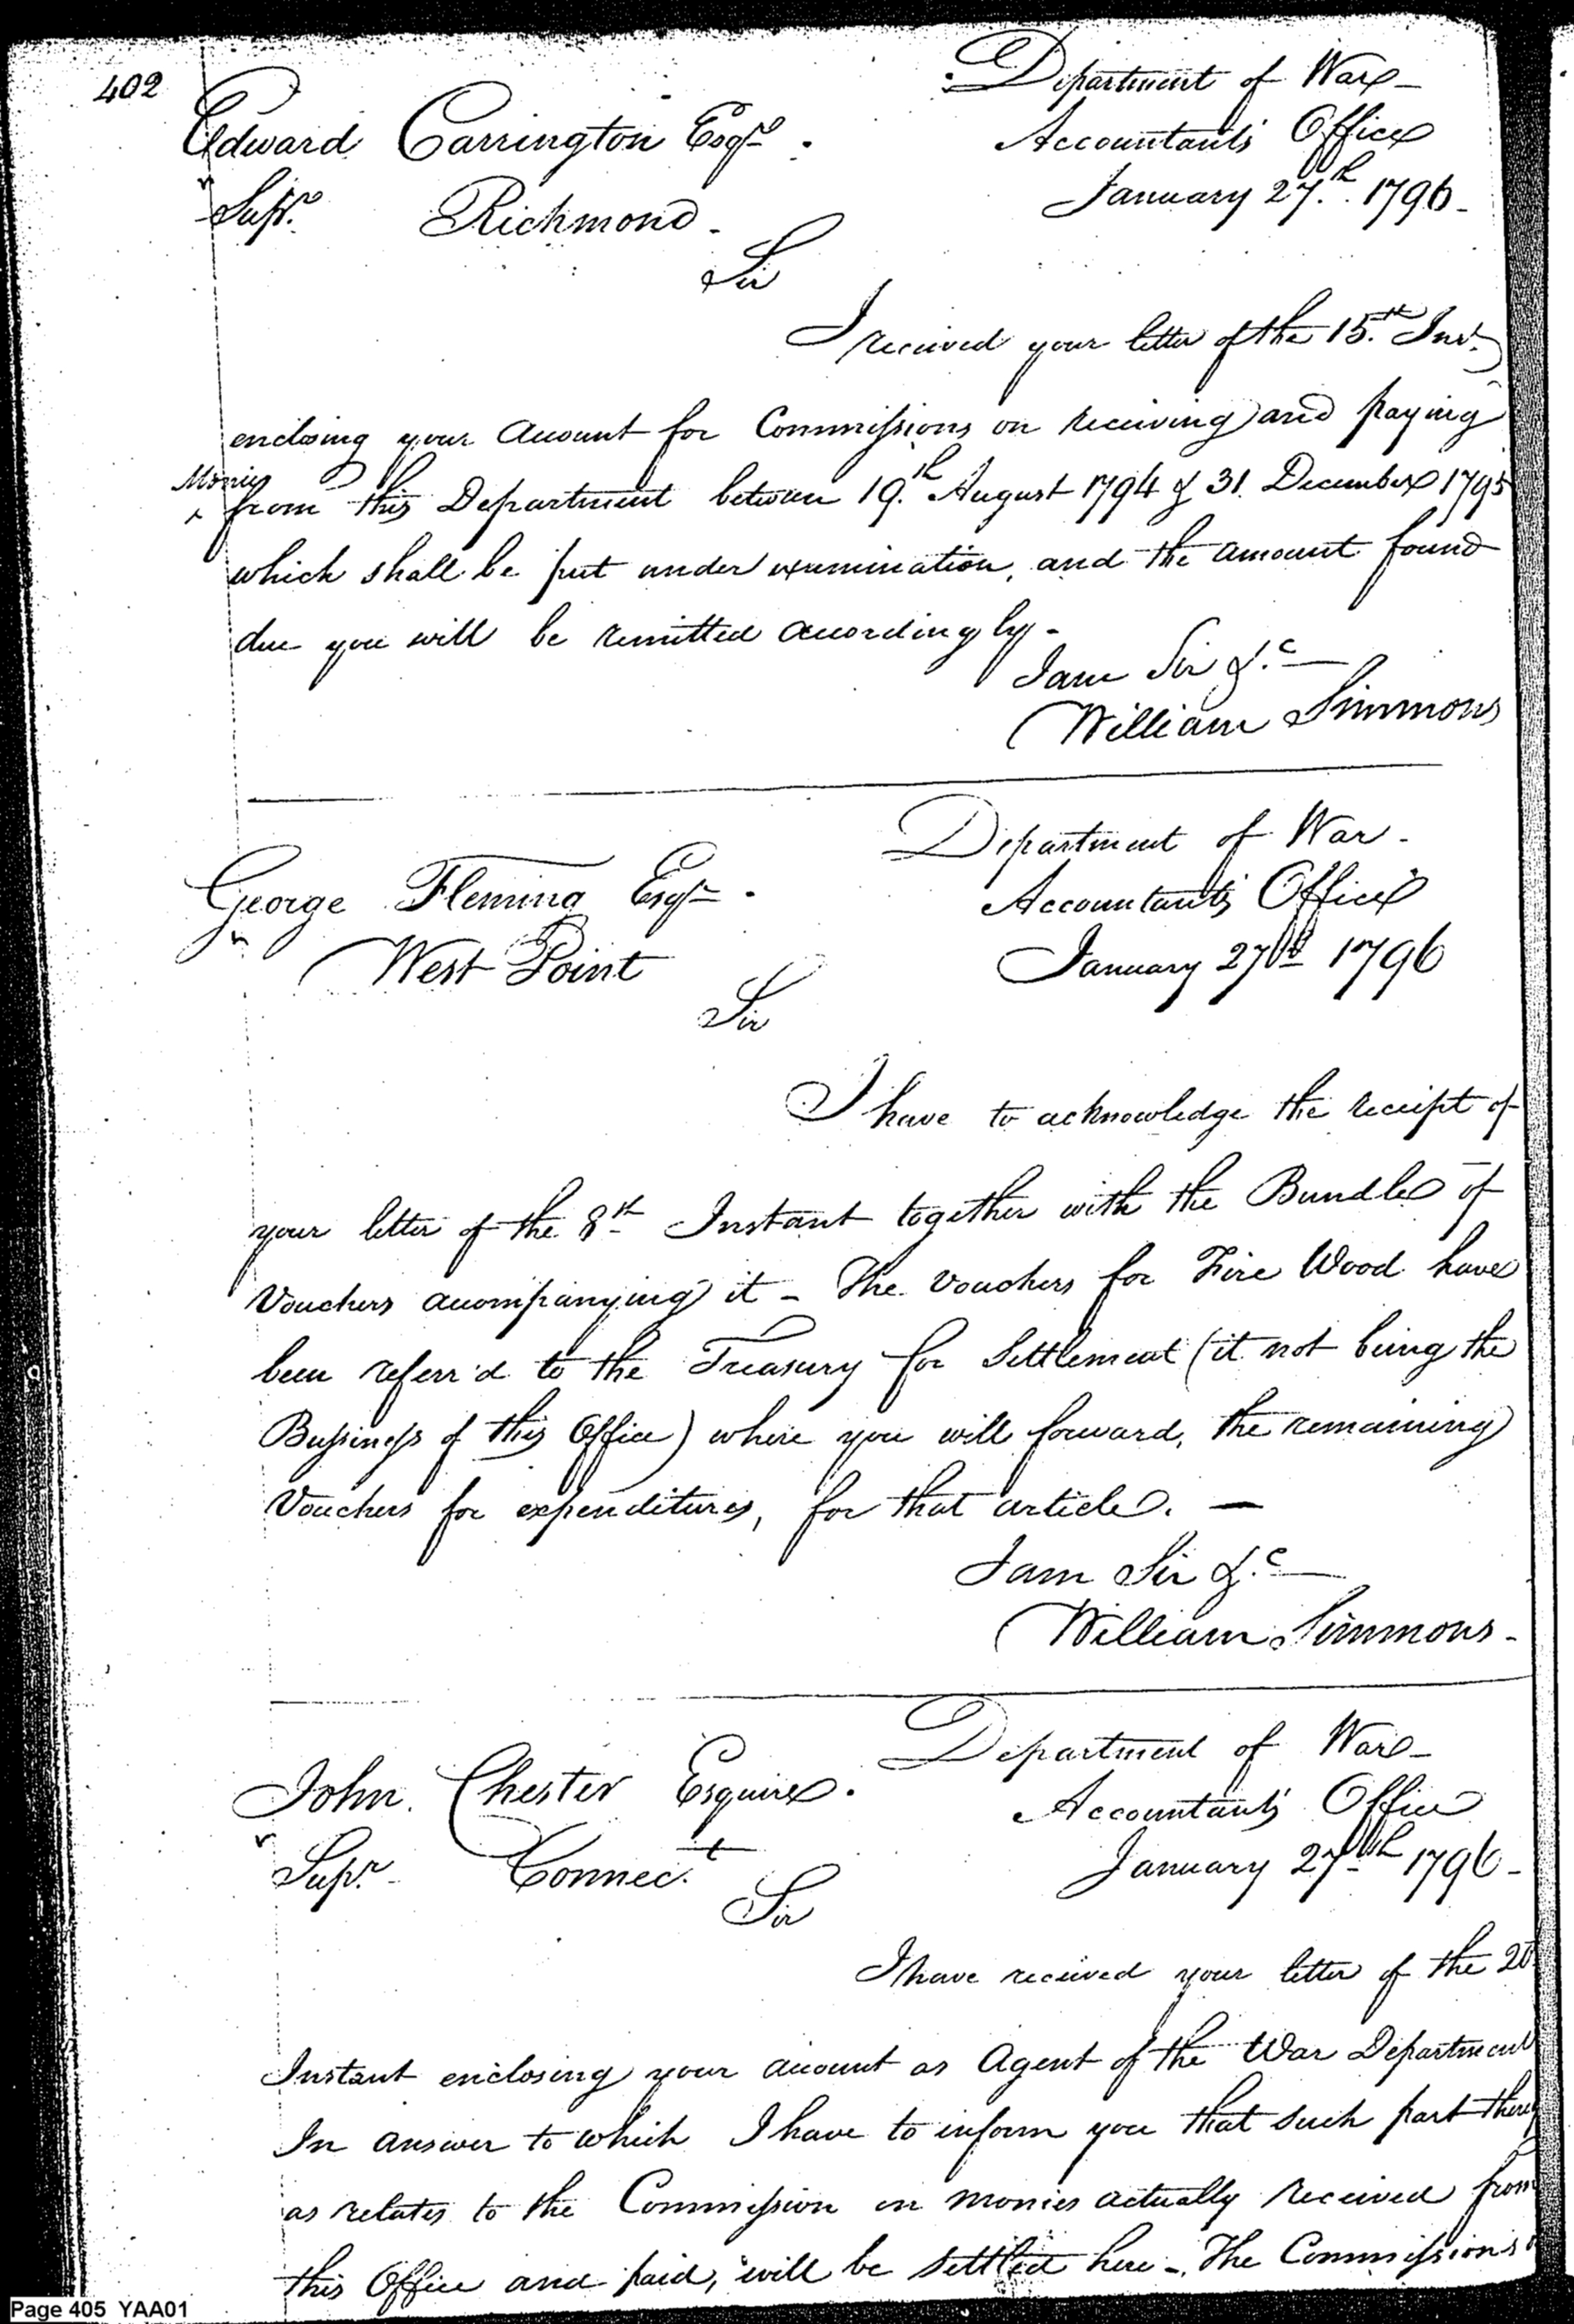 402
Department of War
Edward Carrington Esqr.
Accountants Office
Supr. Richmond
January 27.th 1796
Sir
I received your letter of the 15.th Inst.
enclosing your Account for Commissions on receiving and paying
Monies
^ from this Department between 19.th August 1794 & 31. December 1795
which shall be put under examination, and the amount found
due you will be remitted accordingly.
I am Sir &.c
William Simmons
Department of War
George Fleming Esqr.
Accountants Office
West Point
January 27th 1796
Sir
I have to acknowledge the receipt of
your letter of the 8th Instant together with the Bundle of
Vouchers accompanying it - The Vouchers for Fire Wood have
been referr'd to the Treasury for Settlement (it not being the
Bussiness of this Office) where you will forward, the remaining
Vouchers for expenditures, for that article. —
I am Sir &.c
William Simmons
Department of War
John Chester Esquire.
Accountants Office
Supr. Connect.
January 27th 1796
Sir
I have received your letter of the 20
Instant enclosing your account as Agent of the War Department
In answer to which I have to inform you that such part there
as relates to the Commission on monies actually received from
this Office and paid, will be settled here - The Commissions
Page 405 YAA01